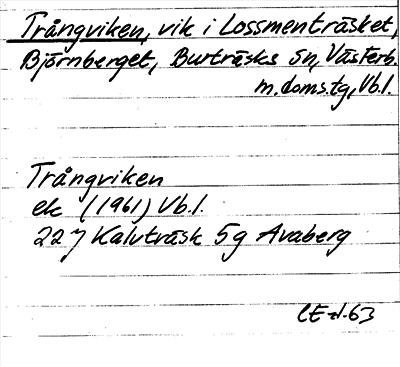 Trångviken, vik i Lossmenträsket,
Björnberget, Burträsks sn, Västerb.
m.doms.tg, Vb.l.
Trångviken
ek (1961) Vb.l.
22 J Kalvträsk 5g Avaberg
63